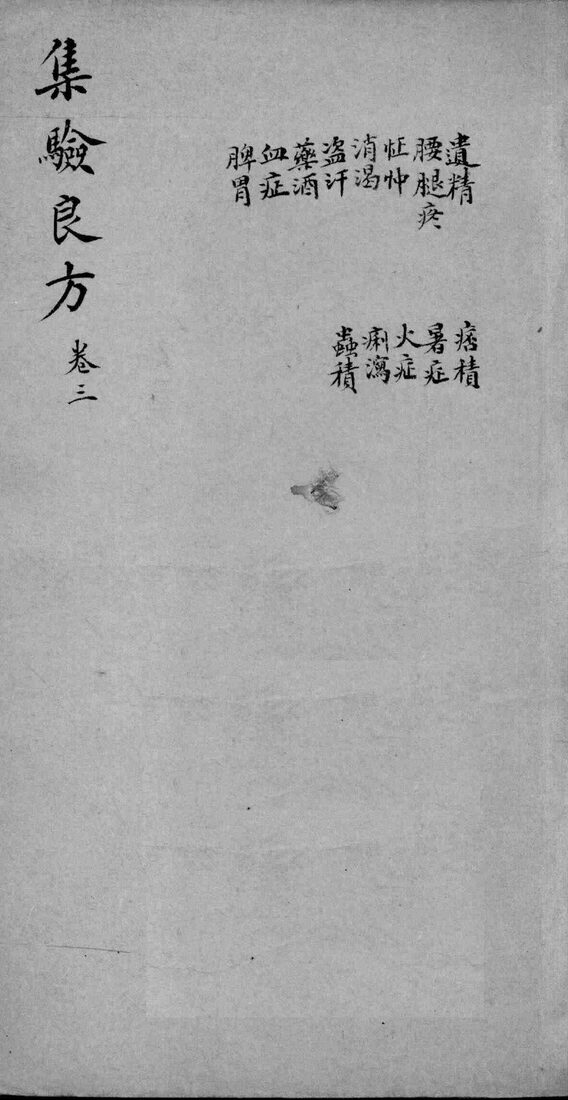 集驗良方 卷三
遺精
腰腿疼
怔忡
消渴
盜汗
藥酒
血症
脾胃
痞積
暑症
火症
痢瀉
蟲積